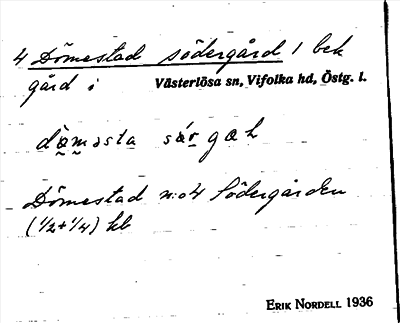 4 Dömestad södergård 1 bek
gård i Västerlösa sn, Vifolka hd, Östg. l.
Dömestad n:o 4 Södergården
(1/2+1/4) hb
ERIK NORDELL 1936